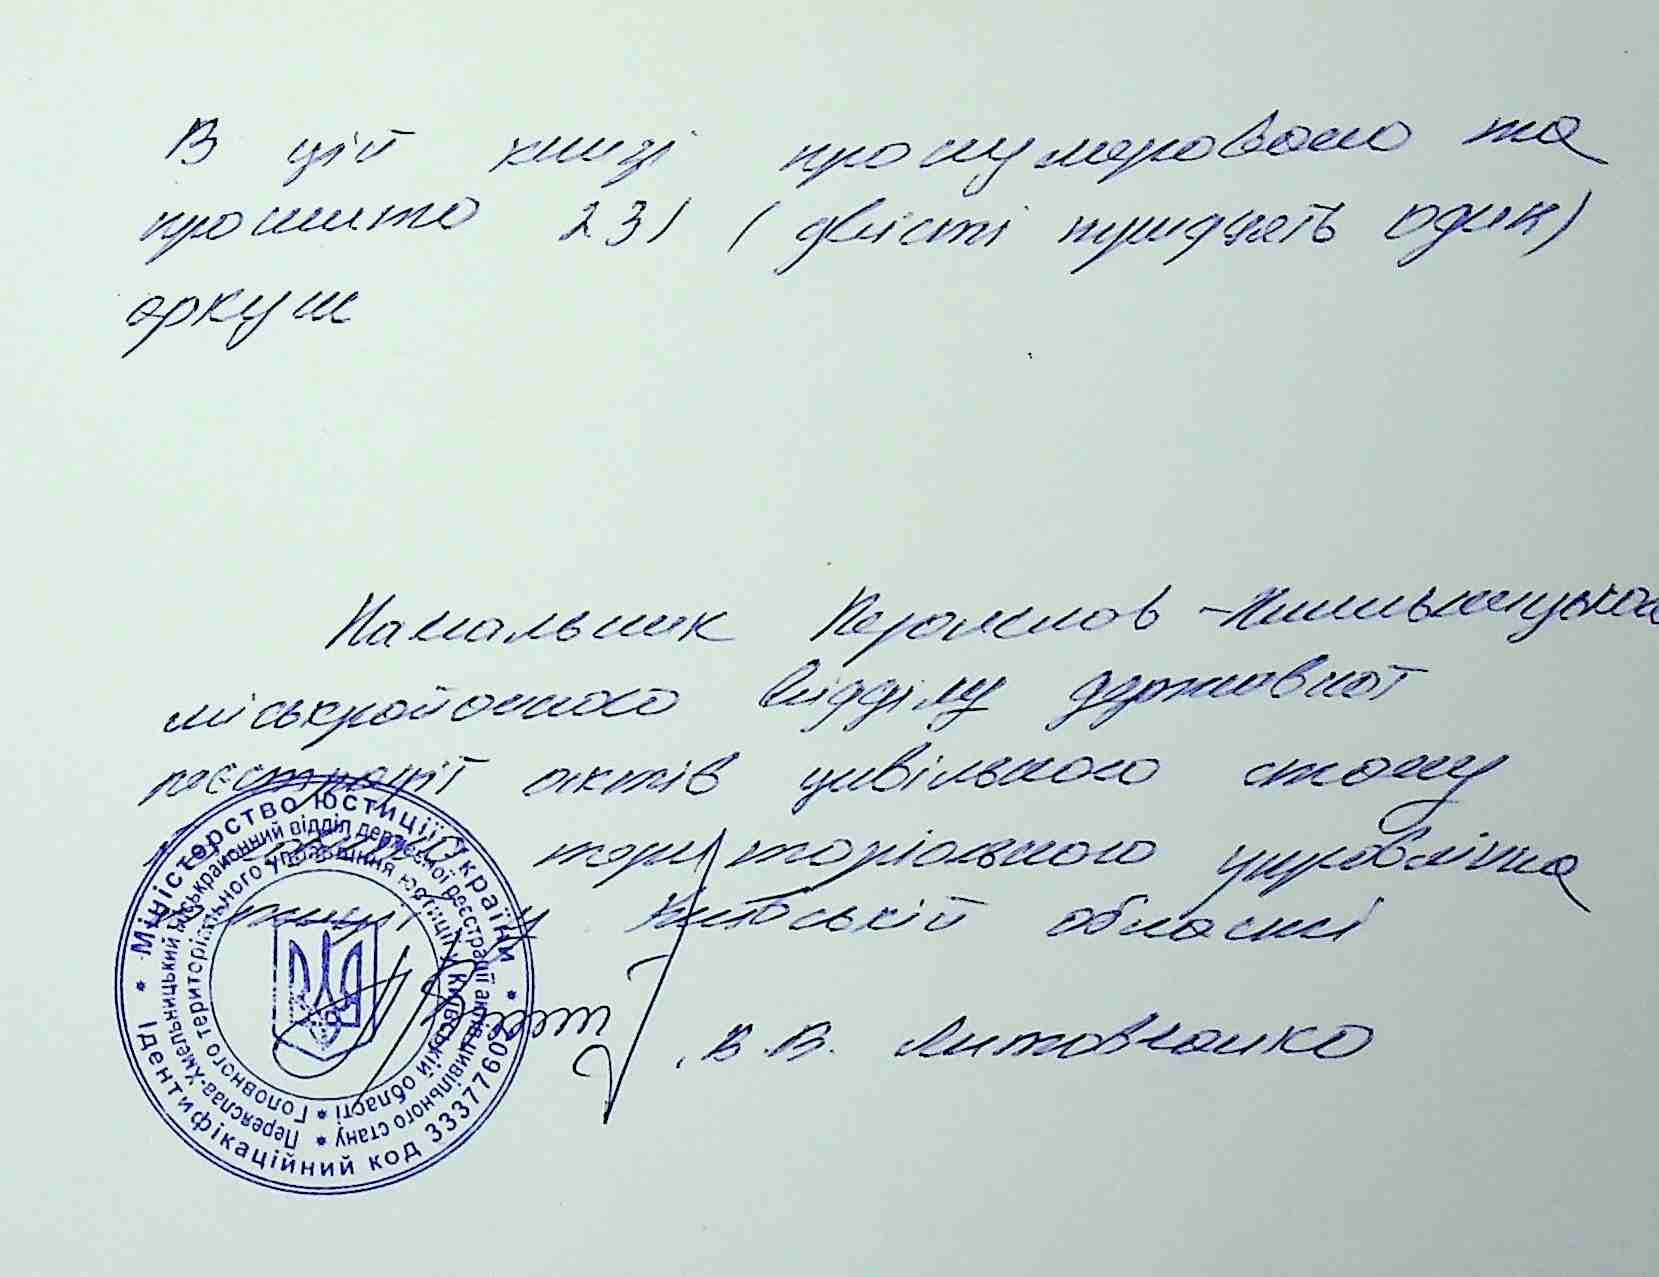 В цій книзі пронумеровано та
прошито 231 (двісті тридцять один)
аркуш
Начальник Переяслав-Хмельницького
міськрайонного відділу державної
реєстрації актів цивільного стану
Головного територіального управління
юстиції у Київській області
В.В. Литовченко
Міністерство юстиції України
Переяслав-Хмельницький міськрайонний відділ державної реєстрації актів цивільного стану
Головного територіального управління юстиції у Київській області
Ідентифікаційний код 33377602